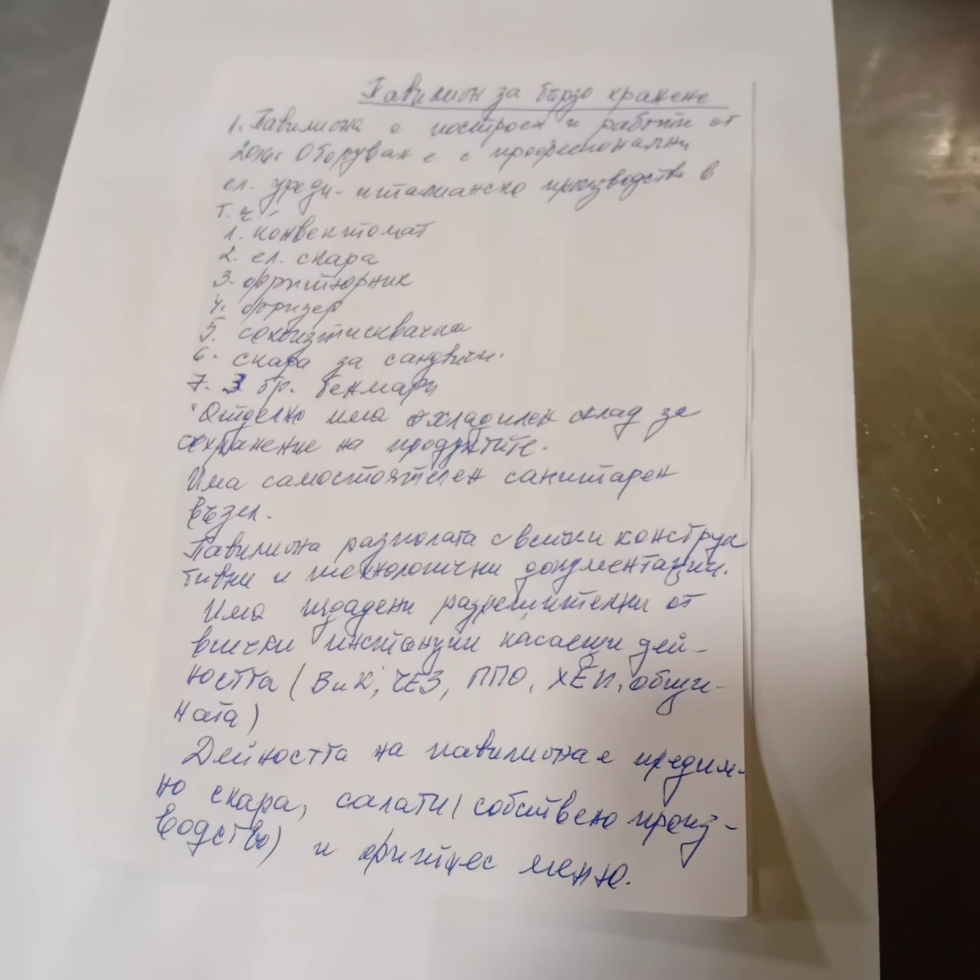 Павилион за бързо хранене
1. Павилиона е построен и работи от
2016г Оборуван е с професионални
ел. уреди - италианско производство в
т.ч.:
1. конвектомат
2. ел. скара
3. фритюрник
4. фризер
5. сокоизтисквачка
6. скара за сандвичи.
7. 3 бр. бенмари
Отделно има охладилен склад за
съхранение на продуктите.
Има самостоятелен санитарен
възел.
Павилиона разполага с всички конструк
тивни и технологични документации.
Има издадени разрешителни от
всички инстанции касаещи дей-
ността (ВиК, ЧЕЗ, ППО, ХЕИ, общи-
ната)
Дейността на павилиона е предим-
но скара, салати (собствено произ-
водство) и фритюрес меню.